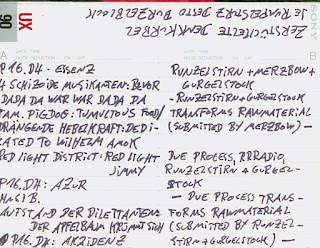 ZERSTÜCKELTE DENKKURBEL
JE RUMPELSTARZ DESTO PURZELBOCK
UX
90
SONY
A
B
P16.D4 - EFSENZ
4 SCHIZOIDE MUSIKANTEN: BEVOR
DADA DA WAR WAR DADA DA
TAM. PIGDOG: TUMULTOUS FOOD/
DRÄNGENDE HEBELKRAFT: DEDI-
CATED TO WILHELM AMOK
RED LIGHT DISTRICT: RED LIGHT
JIMMY
P16.D4: AZUR
AUFSTAND DER DILETTANTEN:
DER APFELBAUM
P16.D4: AKZIDENZ
RUNZELSTIRN + MERZBOW +
GURGELSTOCK
- RUNZELSTIRN + GURGELSTOCK
TRANSFORMS RAWMATERIAL
(SUBMITTED BY MERZBOW) -
DUE PROCESS, RRRADIO,
RUNZELSTIRN + GURGEL-
STOCK
- DUE PROCESS TRANS-
FORMS RAWMATERIAL
(SUBMITTED BY RUNZEL-
STIRN + GURGELSTOCK) -